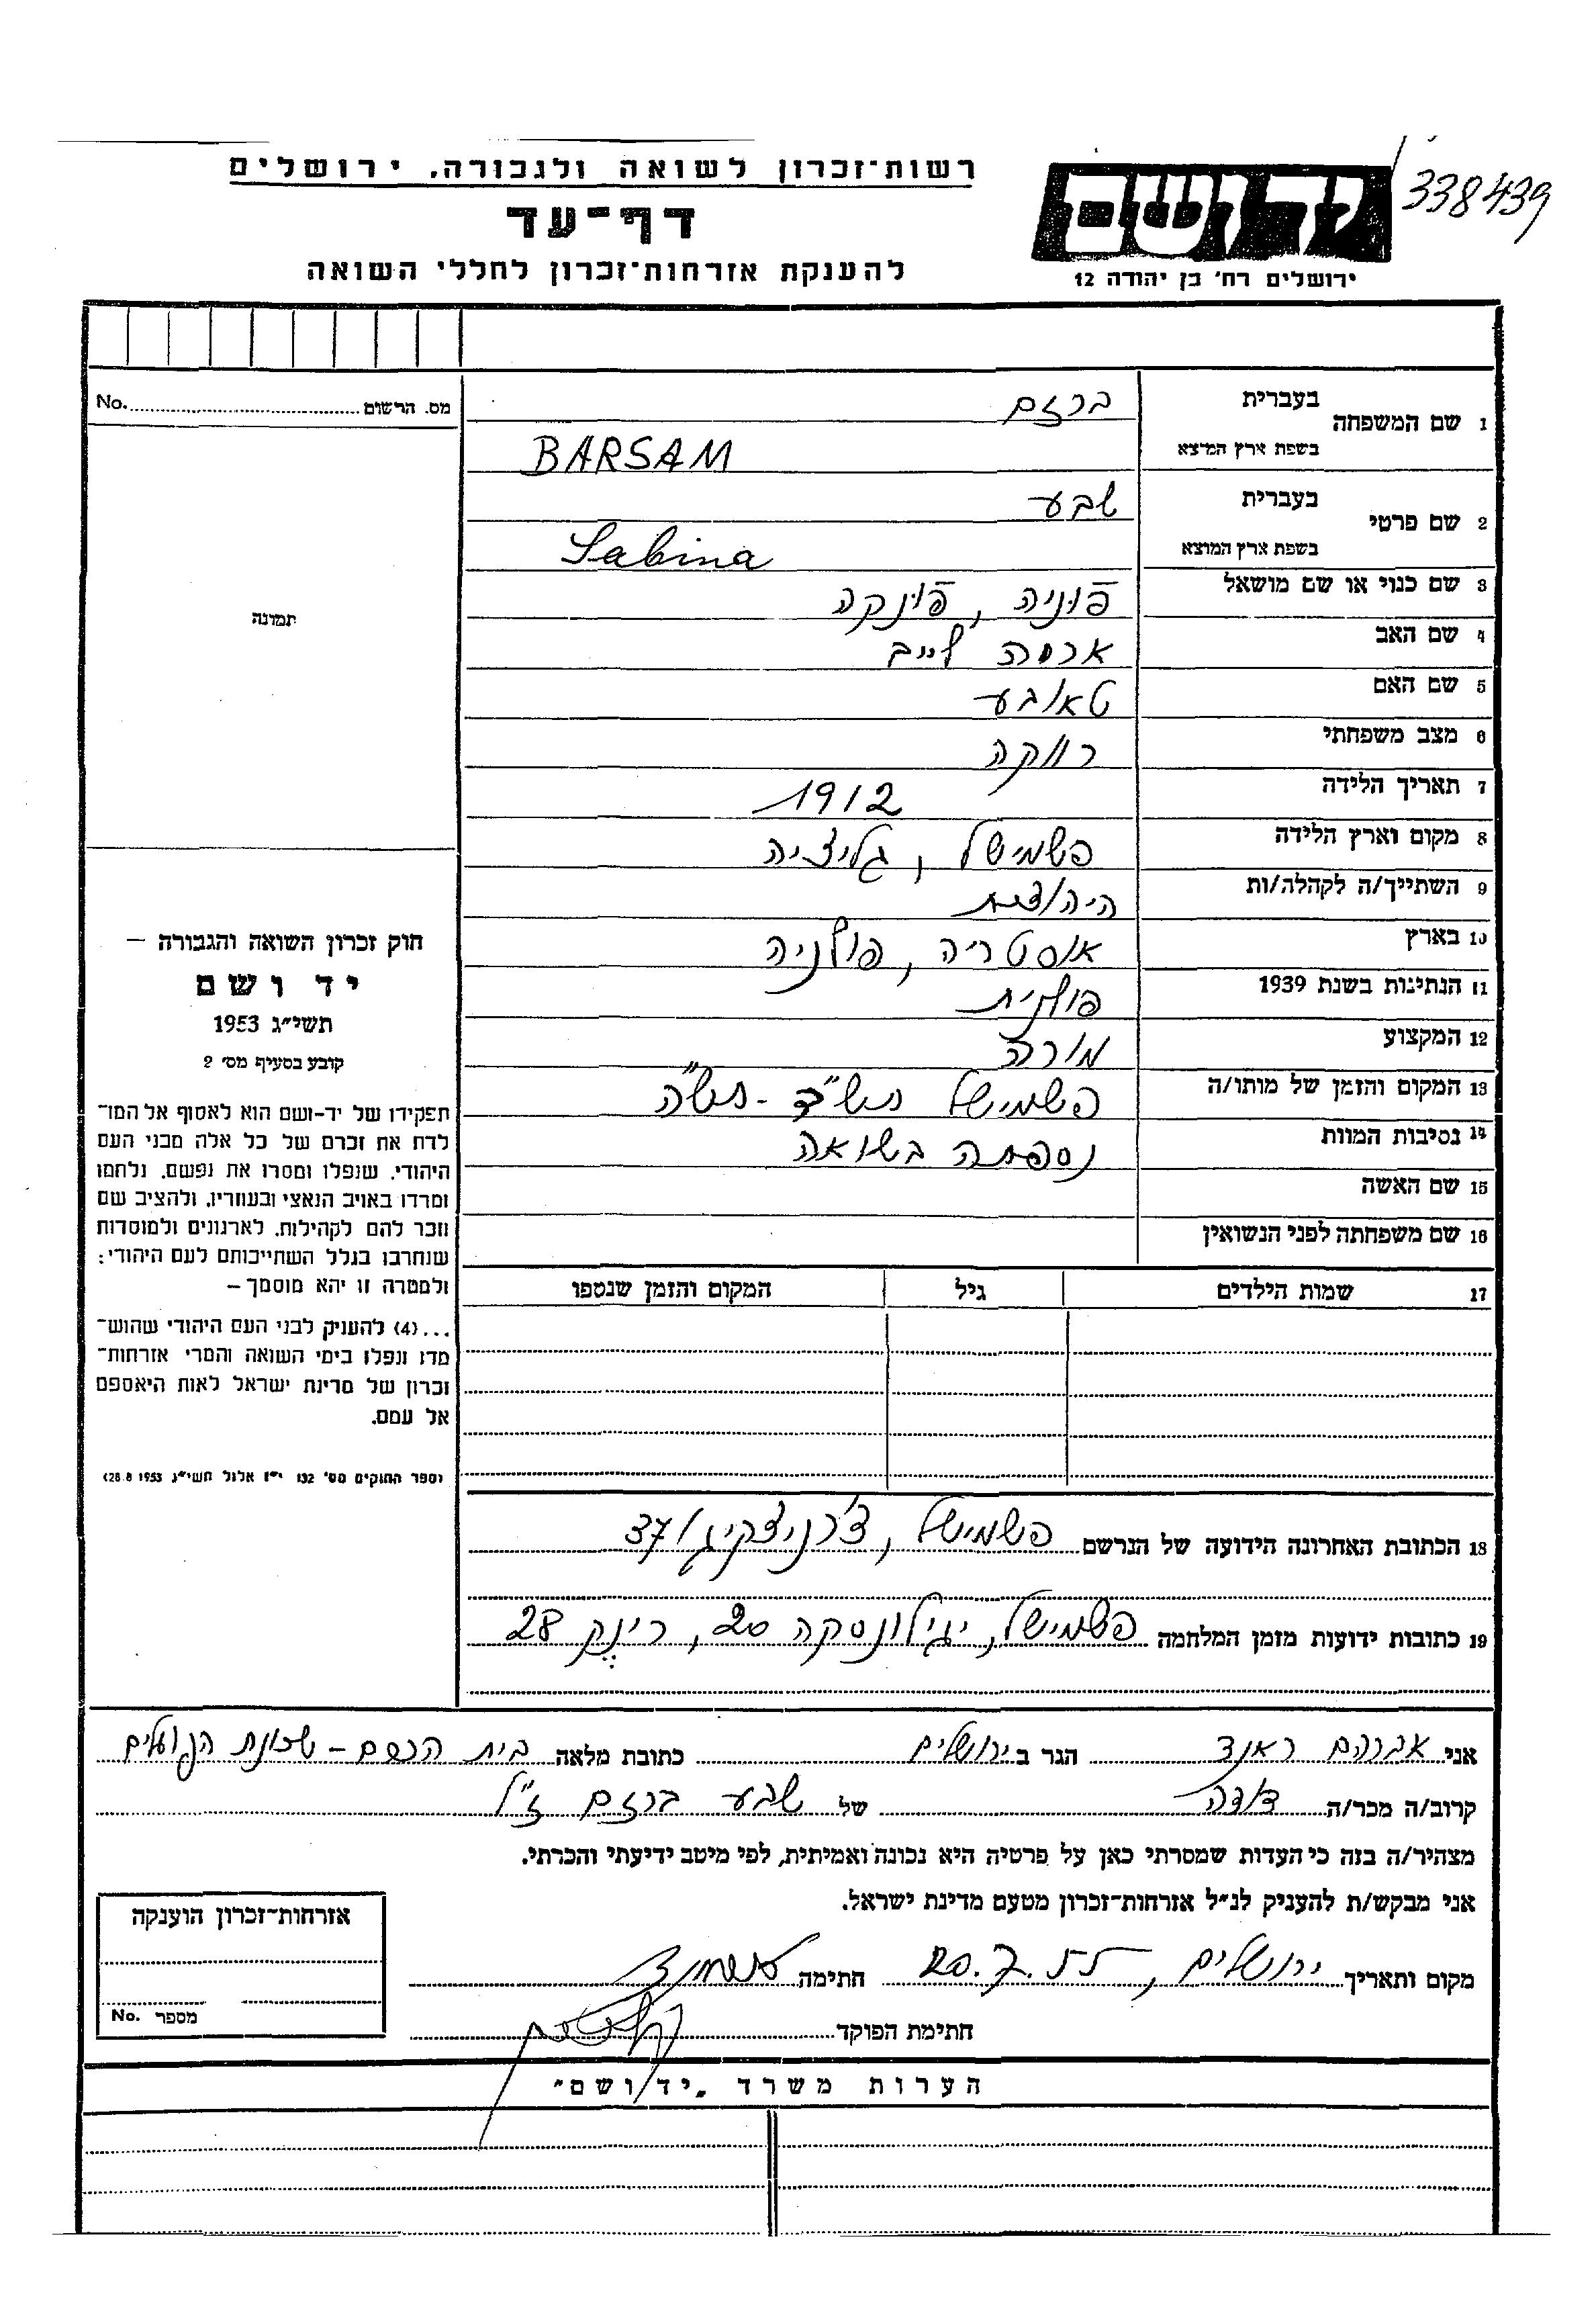 338439
רשות־זכרון לשואה ולגבורה, ירושלים
דף־עד
להענקת אזרחות־זכרון לחללי השואה
יד ושם
ירושלים רח' בן יהודה 12
מס. הרשום No.
תמונה
1 שם המשפחה בעברית ברזם
בשפת ארץ המוצא BARSAM
2 שם פרטי בעברית שבע
בשפת ארץ המוצא Sabina
3 שם כנוי או שם מושאל פוניה, פונקה
4 שם האב לייב
5 שם האם טאובע
6 מצב משפחתי רווקה
7 תאריך הלידה 1912
8 מקום וארץ הלידה פשמישל, גליציה
9 השתייך/ה לקהלה/ות היהודית
10 בארץ אוסטריה, פולניה
11 הנתינות בשנת 1939 פולנית
12 המקצוע מורה
13 המקום והזמן של מותו/ה פשמישל תש"ב - תש"ה
14 נסיבות המוות נספתה בשואה
15 שם האשה
16 שם משפחתה לפני הנשואין
17 שמות הילדים גיל המקום והזמן שנספו
חוק זכרון השואה והגבורה –
יד ושם
תשי"ג 1953
קובע בסעיף מס' 2
תפקידו של יד-ושם הוא לאסוף אל המו־
לדת את זכרם של כל אלה מבני העם
היהודי, שנפלו ומסרו את נפשם, נלחמו
ומרדו באויב הנאצי ובעוזריו, ולהציב שם
וזכר להם לקהילות, לארגונים ולמוסדות
שנחרבו בגלל השתייכותם לעם היהודי;
ולמטרה זו יהא מוסמך –
...(4) להעניק לבני העם היהודי שהוש־
מדו ונפלו בימי השואה והמרי אזרחות־
זכרון של מדינת ישראל לאות היאספם
אל עמם.
(ספר החוקים מס' 132 י"ז אלול תשי"ג 28.8.1953)
18 הכתובת האחרונה הידועה של הנרשם פשמישל, 37
19 כתובות ידועות מזמן המלחמה פשמישל, יגילונסקה 20, רינק 28
אני אברהם ראנד הגר ב ירושלים כתובת מלאה בית הדפוס – שכונת הפועלים
קרוב/ה מכר/ה דודה של שבע ברזם ז"ל
מצהיר/ה בזה כי העדות שמסרתי כאן על פרטיה היא נכונה ואמיתית, לפי מיטב ידיעתי והכרתי.
אני מבקש/ת להעניק לנ"ל אזרחות־זכרון מטעם מדינת ישראל.
מקום ותאריך ירושלים, 20.7.55 חתימה
חתימת הפוקד
אזרחות־זכרון הוענקה
מספר No.
הערות משרד „יד ושם"